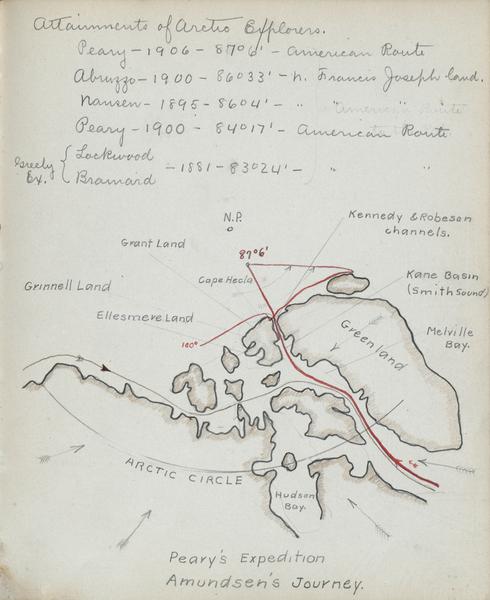 Attainments of Arctic Explorers.
Peary - 1906 - 87°6' - American Route
Abruzzo - 1900 - 86°33' - n. Francis Joseph land.
Nansen - 1895 - 8604' - " "
Peary - 1900 - 84°17' - American Route
Greely Ex. { Lockwood
Brainard - 1881 - 83°24' - " "
N.P.
Kennedy & Robeson
channels.
Grant Land
87°6'
Cape Hecla
Kane Basin
(Smith Sound)
Grinnell Land
Ellesmere Land
Greenland
Melville
Bay.
100°
ARCTIC CIRCLE
Hudson
Bay.
Peary's Expedition
Amundsen's Journey.